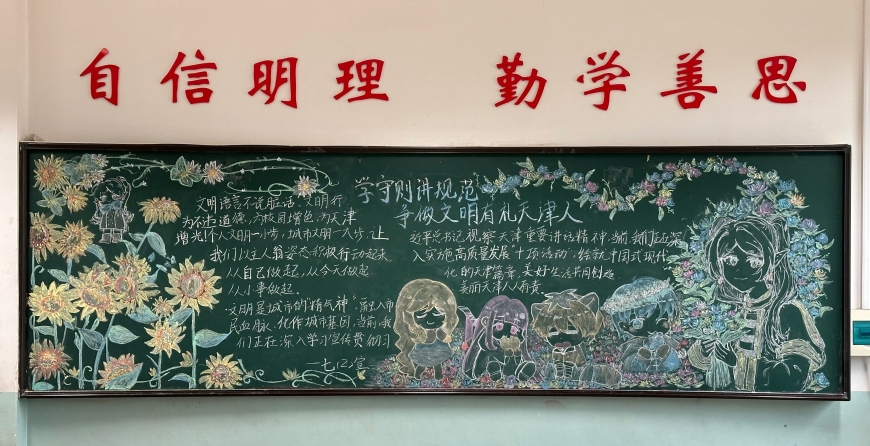 自信明理 勤学善思
文明语言不说脏话,文明行
为不出道德,为校园增色,为天津
增光!个人文明一小步,城市文明一大步,让
我们以主人翁姿态积极行动起来
从自己做起,从今天做起
从小事做起.
文明是城市的"精气神",融入市
民血脉、化作城市基因,当前,我
们正在深入学习宣传贯彻习
一七(2)宣
学守则讲规范
争做文明有礼天津人
近平总书记视察天津重要讲话精神,当前,我们正在深
入实施高质量发展"十项活动",绘就中国式现代
化的天津篇章,美好生活共同创造
美丽天津人人有责